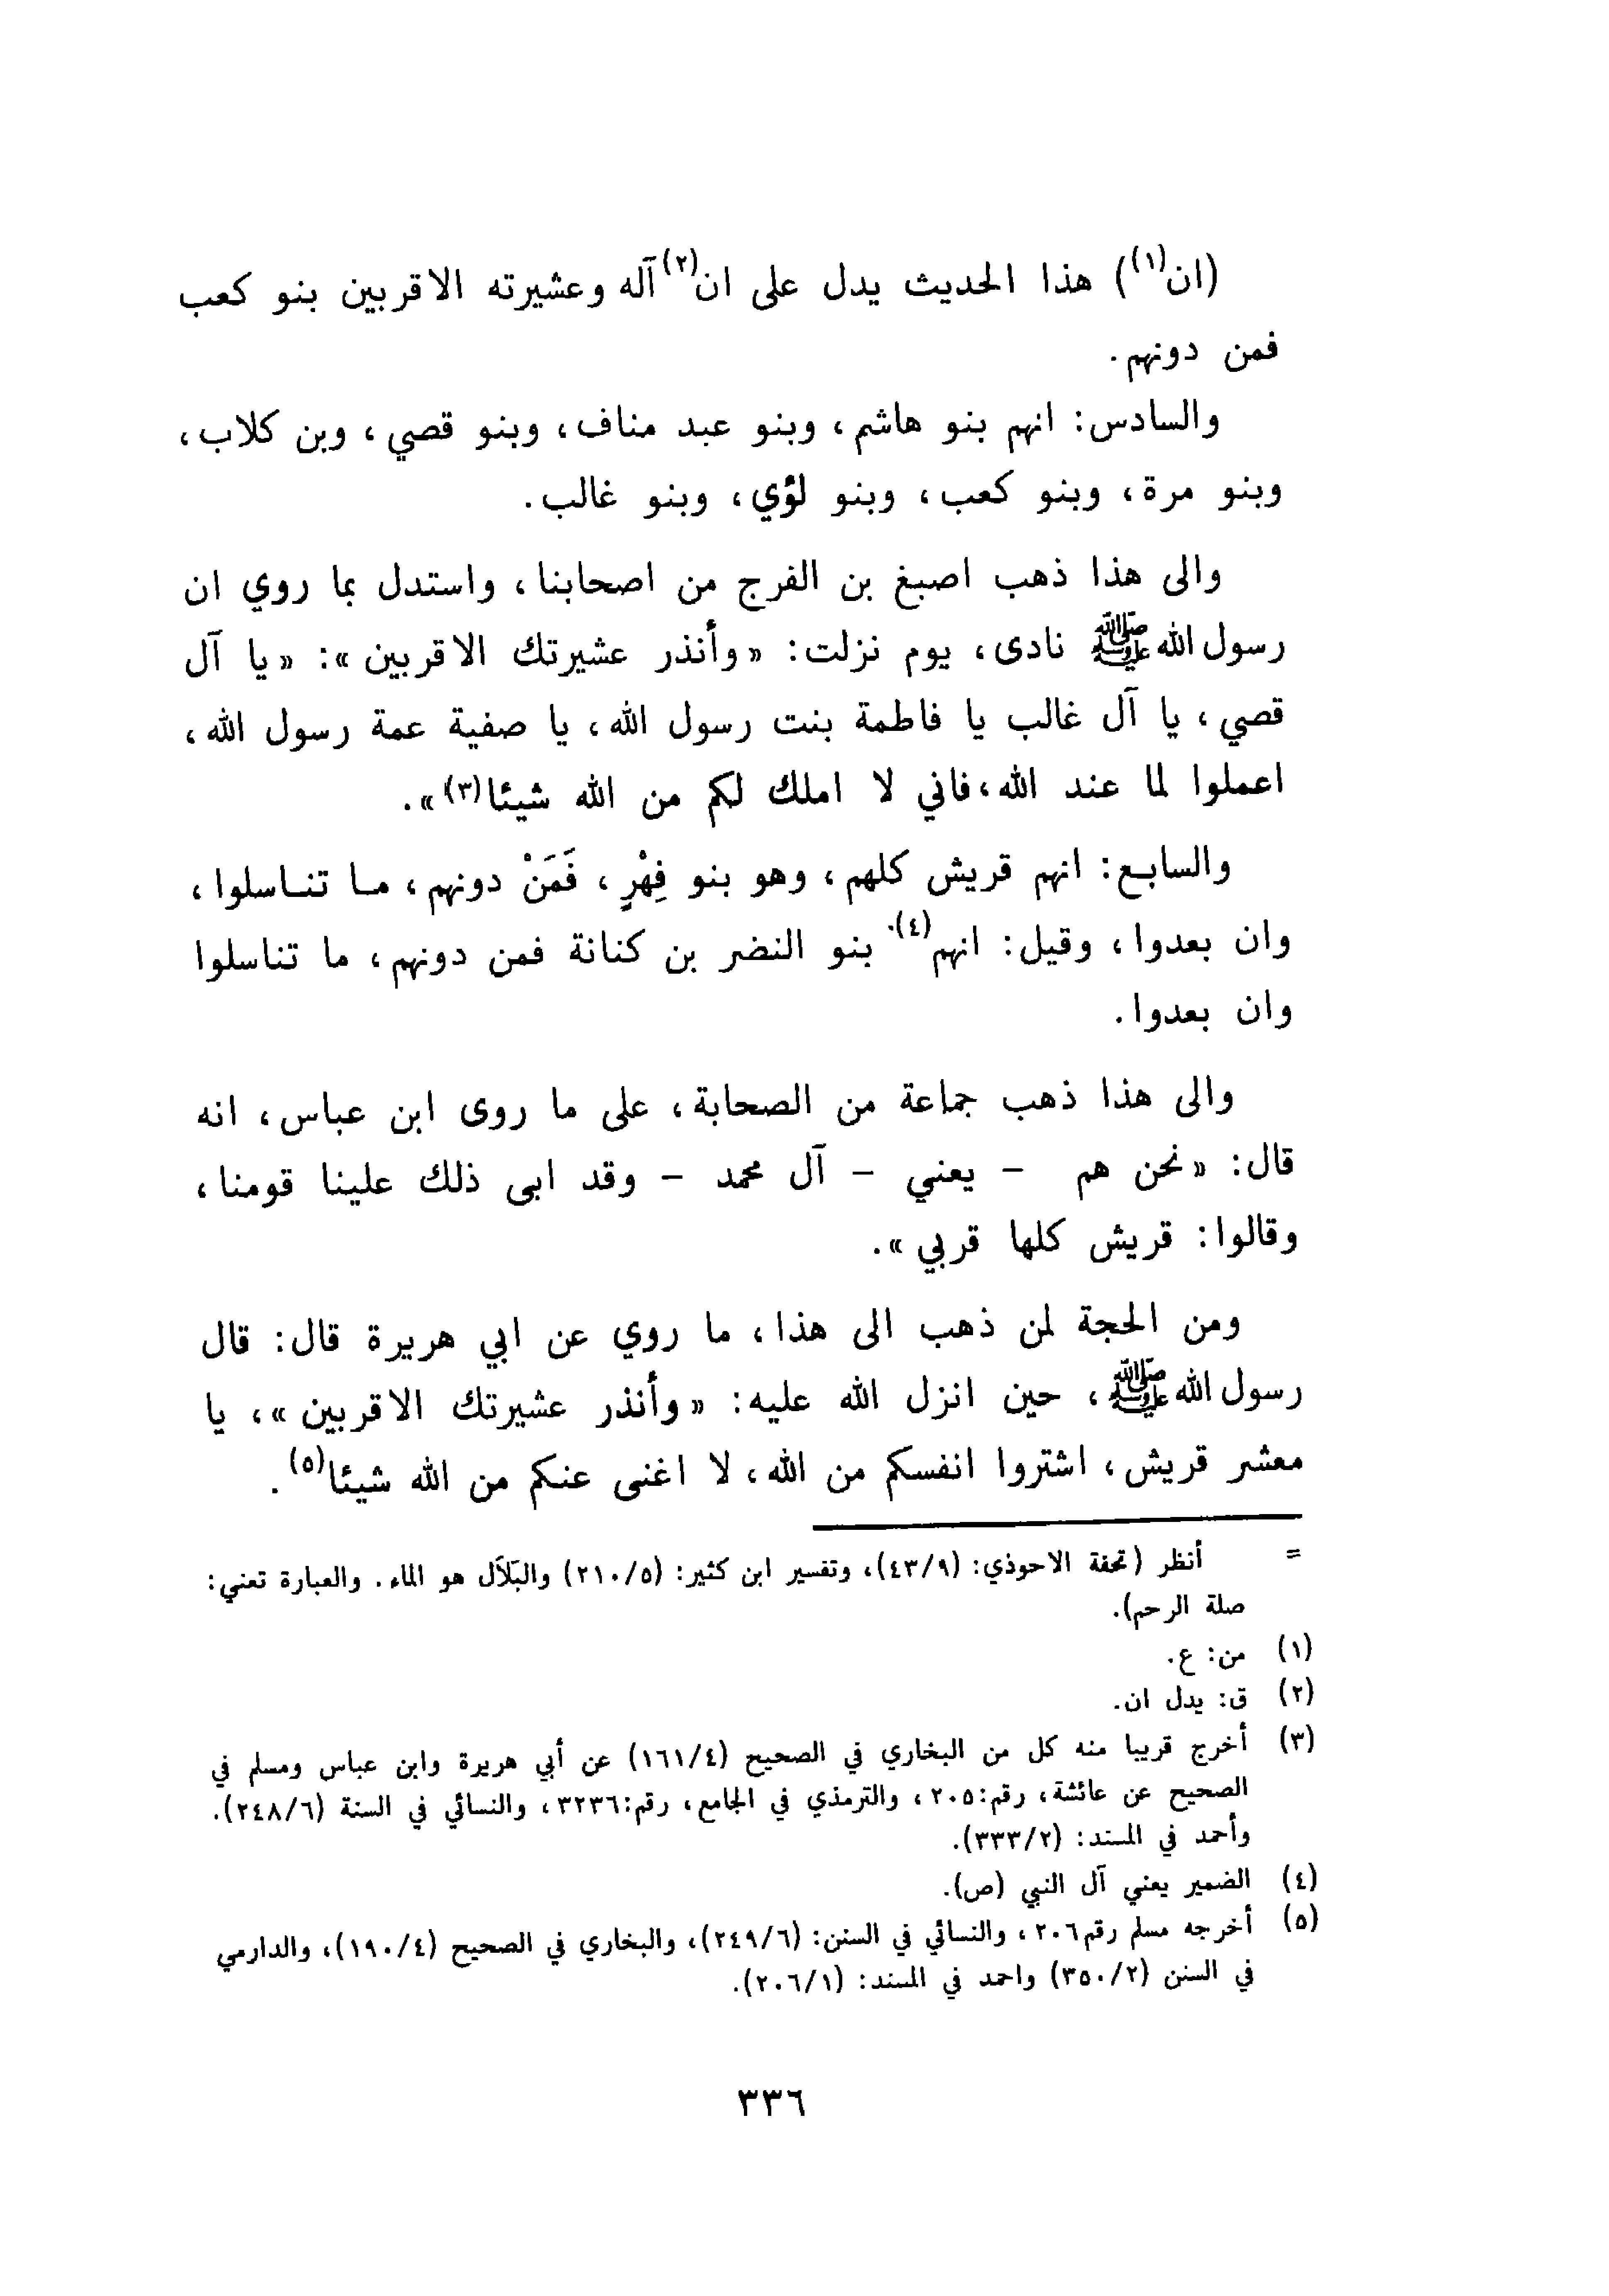 (ان(١)) هذا الحديث يدل على ان(٢) آله وعشيرته الاقربين بنو كعب
فمن دونهم.
والسادس: انهم بنو هاشم، وبنو عبد مناف، وبنو قصي، وبن كلاب،
وبنو مرة، وبنو كعب، وبنو لؤي، وبنو غالب.
والى هذا ذهب اصبغ بن الفرج من اصحابنا، واستدل بما روي ان
رسول الله ﷺ نادى، يوم نزلت: «وأنذر عشيرتك الاقربين»: «يا آل
قصي، يا آل غالب يا فاطمة بنت رسول الله، يا صفية عمة رسول الله،
اعملوا لما عند الله، فاني لا املك لكم من الله شيئا(٣)».
والسابع: انهم قريش كلهم، وهو بنو فِهْرٍ، فَمَنْ دونهم، ما تناسلوا،
وان بعدوا، وقيل: انهم(٤). بنو النضر بن كنانة فمن دونهم، ما تناسلوا
وان بعدوا.
والى هذا ذهب جماعة من الصحابة، على ما روى ابن عباس، انه
قال: «نحن هم - يعني - آل محمد - وقد ابى ذلك علينا قومنا،
وقالوا: قريش كلها قربي».
ومن الحجة لمن ذهب الى هذا، ما روي عن ابي هريرة قال: قال
رسول الله ﷺ، حين انزل الله عليه: «وأنذر عشيرتك الاقربين»، يا
معشر قريش، اشتروا انفسكم من الله، لا اغنى عنكم من الله شيئا(٥).
= أنظر (تحفة الاحوذي: (٤٣/٩)، وتفسير ابن كثير: (٢١٠/٥) والبَلاَل هو الماء. والعبارة تعني:
صلة الرحم).
(١) من: ع.
(٢) ق: يدل ان.
(٣) أخرج قريبا منه كل من البخاري في الصحيح (١٦١/٤) عن أبي هريرة وابن عباس ومسلم في
الصحيح عن عائشة، رقم: ٢٠٥، والترمذي في الجامع، رقم: ٣٢٣٦، والنسائي في السنة (٢٤٨/٦).
وأحمد في المسند: (٣٣٣/٢).
(٤) الضمير يعني آل النبي (ص).
(٥) أخرجه مسلم رقم ٢٠٦، والنسائي في السنن: (٢٤٩/٦)، والبخاري في الصحيح (١٩٠/٤)، والدارمي
في السنن (٣٥٠/٢) واحمد في المسند: (٢٠٦/١).
٣٣٦